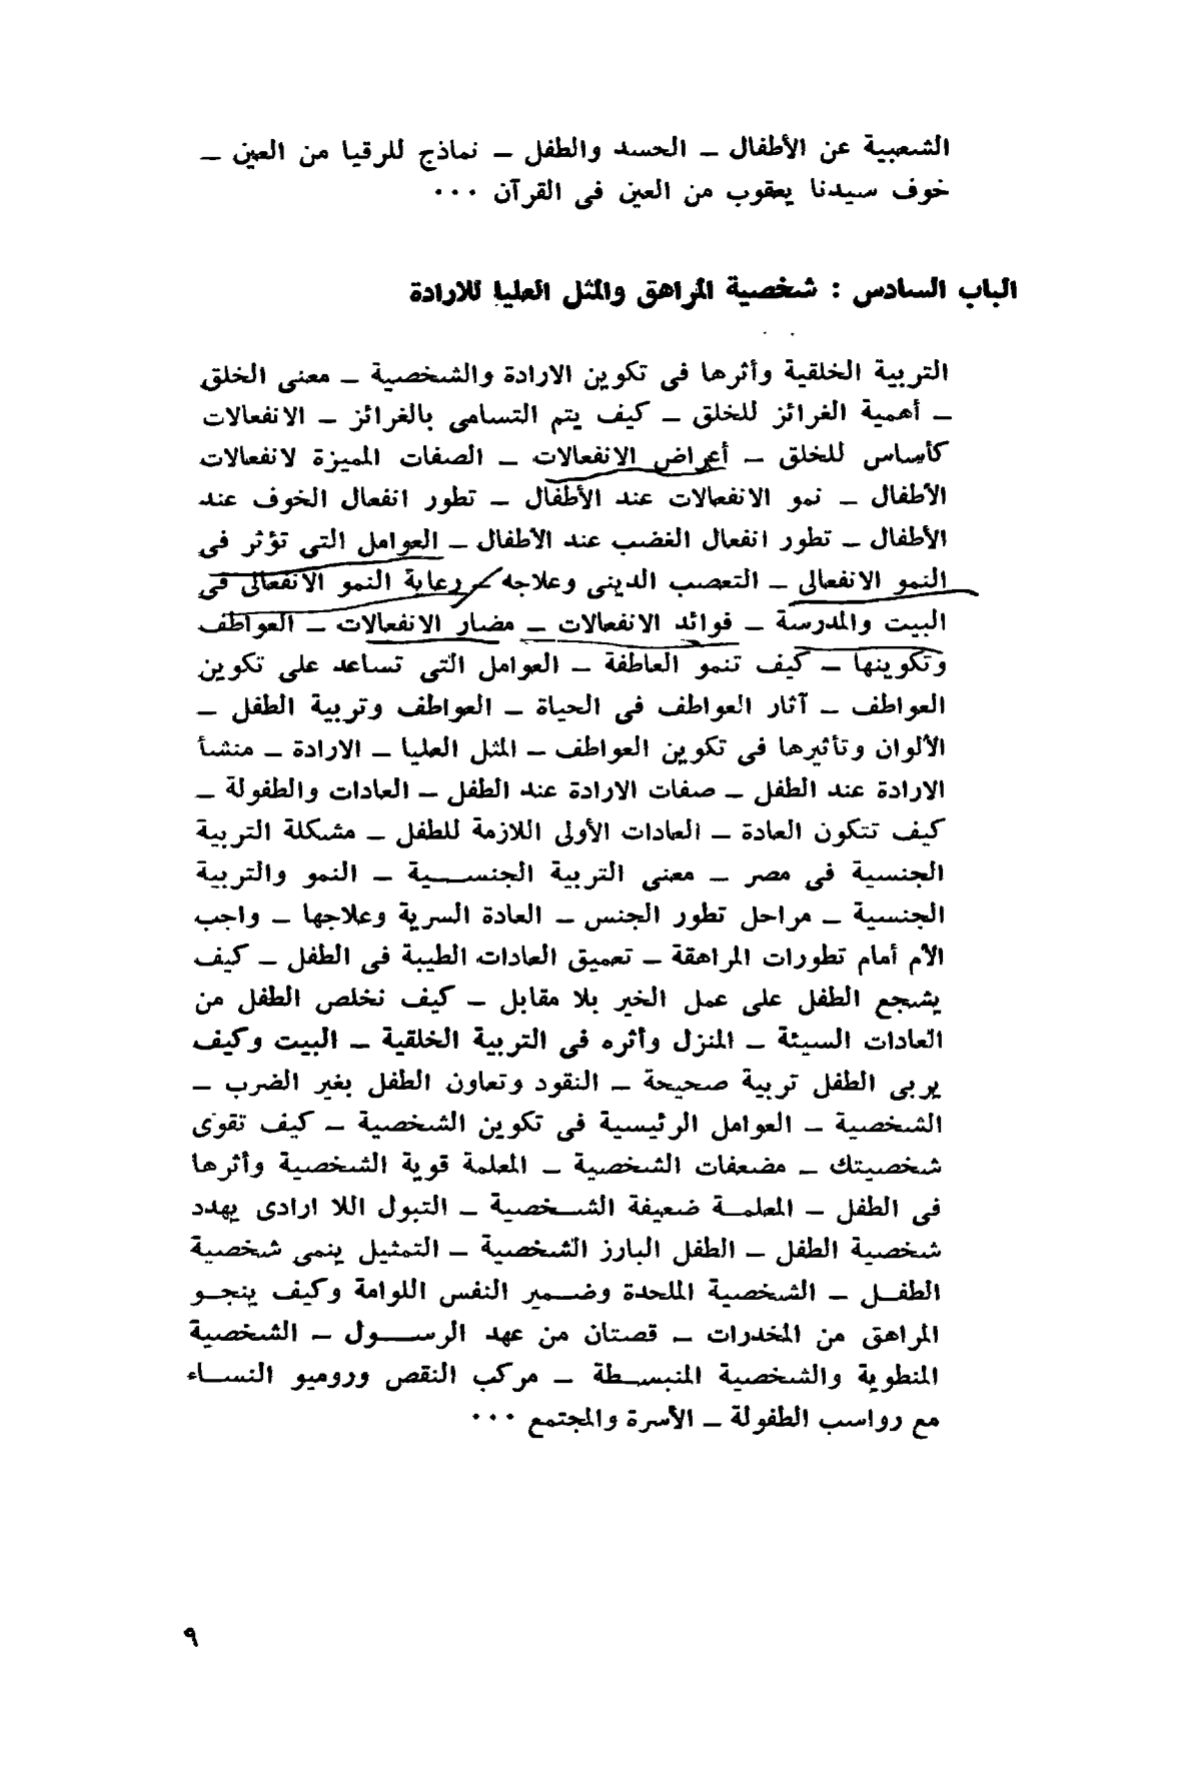 الشعبية عن الأطفال ــ الحسد والطفل ــ نماذج للرقيا من العين ــ
خوف سيدنا يعقوب من العين فى القرآن ٠٠٠
الباب السادس : شخصية المراهق والمثل العليا للارادة
التربية الخلقية وأثرها فى تكوين الارادة والشخصية ــ معنى الخلق
ــ أهمية الغرائز للخلق ــ كيف يتم التسامى بالغرائز ــ الانفعالات
كأساس للخلق ــ أعراض الانفعالات ــ الصفات المميزة لانفعالات
الأطفال ــ نمو الانفعالات عند الأطفال ــ تطور انفعال الخوف عند
الأطفال ــ تطور انفعال الغضب عند الأطفال ــ العوامل التى تؤثر فى
النمو الانفعالى ــ التعصب الدينى وعلاجه ــ رعاية النمو الانفعالى فى
البيت والمدرسة ــ فوائد الانفعالات ــ مضار الانفعالات ــ العواطف
وتكوينها ــ كيف تنمو العاطفة ــ العوامل التى تساعد على تكوين
العواطف ــ آثار العواطف فى الحياة ــ العواطف وتربية الطفل ــ
الألوان وتأثيرها فى تكوين العواطف ــ المثل العليا ــ الارادة ــ منشأ
الارادة عند الطفل ــ صفات الارادة عند الطفل ــ العادات والطفولة ــ
كيف تتكون العادة ــ العادات الأولى اللازمة للطفل ــ مشكلة التربية
الجنسية فى مصر ــ معنى التربية الجنســـية ــ النمو والتربية
الجنسية ــ مراحل تطور الجنس ــ العادة السرية وعلاجها ــ واجب
الأم أمام تطورات المراهقة ــ تعميق العادات الطيبة فى الطفل ــ كيف
يشجع الطفل على عمل الخير بلا مقابل ــ كيف نخلص الطفل من
العادات السيئة ــ المنزل وأثره فى التربية الخلقية ــ البيت وكيف
يربى الطفل تربية صحيحة ــ النقود وتعاون الطفل بغير الضرب ــ
الشخصية ــ العوامل الرئيسية فى تكوين الشخصية ــ كيف تقوى
شخصيتك ــ مضعفات الشخصية ــ المعلمة قوية الشخصية وأثرها
فى الطفل ــ المعلمــة ضعيفة الشــخصية ــ التبول اللا ارادى يهدد
شخصية الطفل ــ الطفل البارز الشخصية ــ التمثيل ينمى شخصية
الطفــل ــ الشخصية الملحدة وضــمير النفس اللوامة وكيف ينجــو
المراهق من المخدرات ــ قصتان من عهد الرســـول ــ الشخصية
المنطوية والشخصية المنبســطة ــ مركب النقص وروميو النســاء
مع رواسب الطفولة ــ الأسرة والمجتمع ٠٠٠
٩